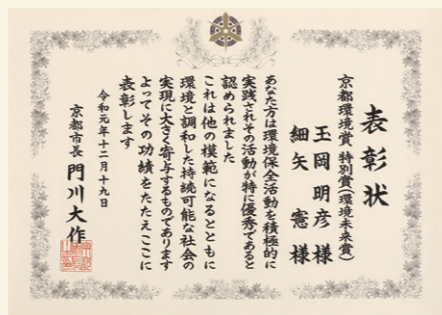 表彰状
京都環境賞 特別賞(環境未来賞)
玉岡明彦様
細矢憲様
あなた方は環境保全活動を積極的に
実践されその活動が特に優秀であると
認められました
これは他の模範になるとともに
環境と調和した持続可能な社会の
実現に大きく寄与するものであります
よってその功績をたたえここに
表彰します
令和元年十二月十九日
京都市長 門川大作